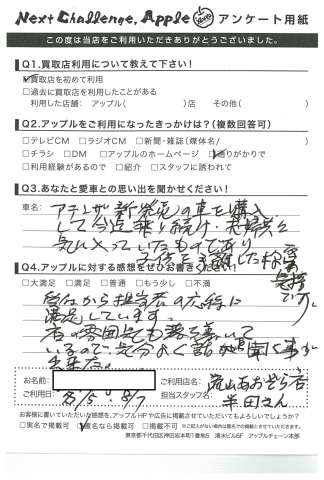 Next Challenge, Apple アンケート用紙
この度は当店をご利用いただきありがとうございました。
Q1.買取店利用について教えて下さい!
買取店を初めて利用
□過去に買取店を利用したことがある
利用した店舗: アップル( )店 その他( )
Q2.アップルをご利用になったきっかけは?(複数回答可)
□テレビCM □ラジオCM □新聞・雑誌(媒体名/ )
□チラシ □DM □アップルのホームページ 通りがかりで
□利用経験があるので □紹介 □スタッフに誘われて
Q3.あなたと愛車との思い出を聞かせください!
車名: アテンザ 新発売の車を購入
して今迄乗り続け・夫婦共々
気に入っていたものであり
Q4.アップルに対する感想をぜひお書きください!
□大満足 □満足 □普通 □もう少し □不満
担当者の
満足しています。
店の雰囲気も落ち着いて
いるので、気分よく話が聞く事が
出来た。
お名前:
ご利用日: 8/7
ご利用店名: 流山おおぞら店
担当スタッフ名: 半田さん
お客様に書いていただいた感想を、アップルHPや広告に掲載させていただいてもよろしいでしょうか?
□実名で掲載可 匿名なら掲載可 □掲載不可 ※ご記入がない場合は匿名での掲載とさせていただきます。
東京都千代田区神田岩本町1番地5 清水ビル6F アップルチェーン本部